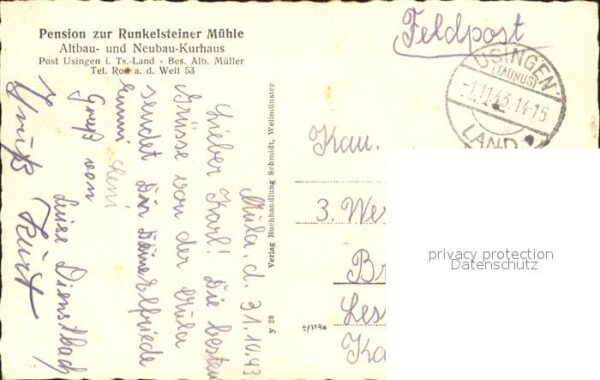 Pension zur Runkelsteiner Mühle
Altbau- und Neubau-Kurhaus
Post Usingen i. Ts.-Land - Bes. Alb. Müller
Tel. Rod a. d. Weil 53
Feldpost
USINGEN
(TAUNUS)
-1.11.43.14-15
LAND
Müla, d. 31.10.43
Lieber Karl! Die besten
Grüsse von der Müla
sendet Dir Deine Elfriede
Gruß von
Luise Dienstbach
Gruß Kurt
y 28
Verlag Buchhandlung Schmidt, Weilmünster
Kan.
3. We
B
Les
Ka
privacy protection
Datenschutz